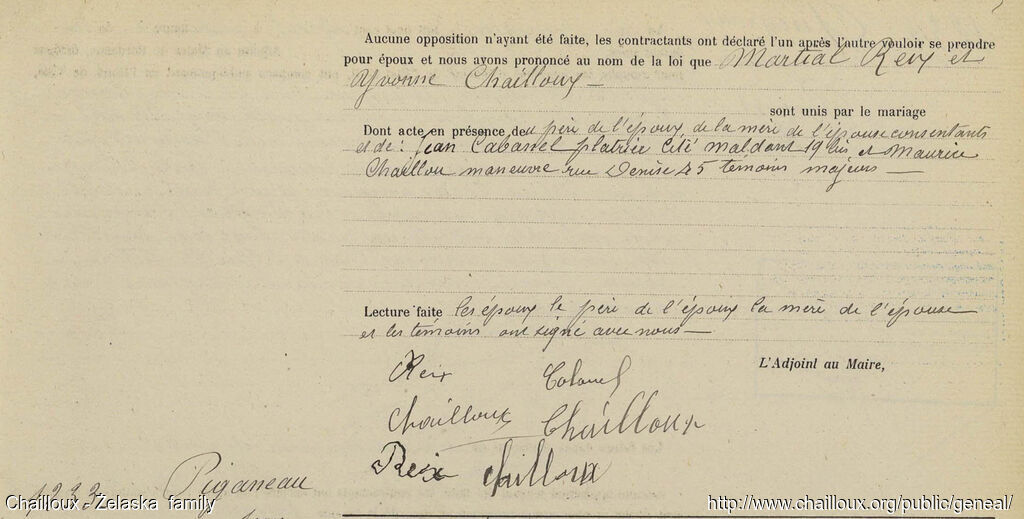 Aucune opposition n'ayant été faite, les contractants ont déclaré l'un après l'autre vouloir se prendre
pour époux et nous avons prononcé au nom de la loi que Martial Reix et
Yvonne Chailloux —
sont unis par le mariage
Dont acte en présence de u père de l'époux, de la mère de l'épouse consentants
et de : Jean Cabanel platrier Cité maldant 19 bis et Maurice
Chaillou manœuvre rue Denise 45 témoins majeurs —
Lecture faite les époux le père de l'époux la mère de l'épouse
et les témoins ont signé avec nous —
L'Adjoint au Maire,
Reix
Chailloux Chailloux
Reix Chailloux
1233 Piganeau
Chailloux - Żelaska family
http://www.chailloux.org/public/geneal/